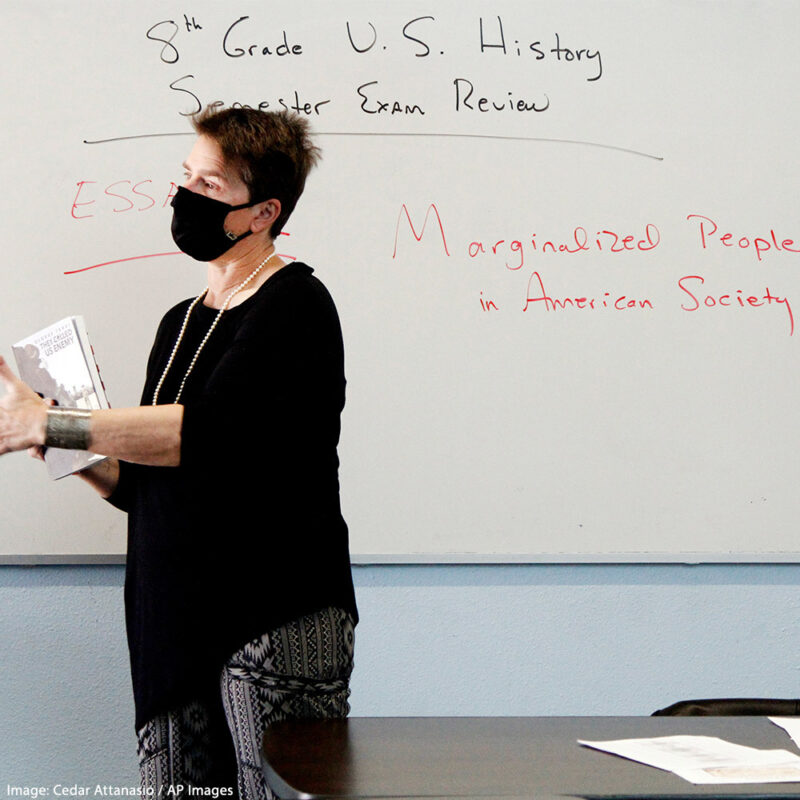 8th Grade U.S. History
Semester Exam Review
Marginalized People
in American Society
THEY CALLED
US ENEMY
Image: Cedar Attanasio / AP Images